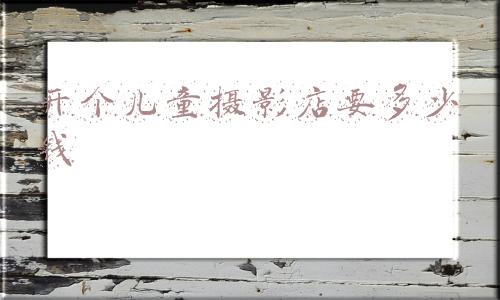 开个儿童摄影店要多少
钱